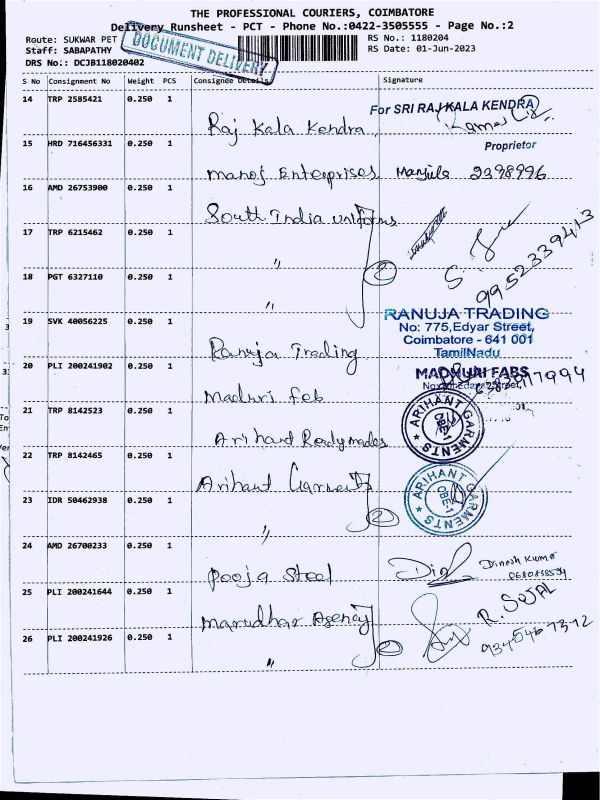 THE PROFESSIONAL COURIERS, COIMBATORE
Delivery Runsheet - PCT - Phone No.:0422-3505555 - Page No.:2
Route: SUKWAR PET
RS No.: 1180204
Staff: SABAPATHY
RS Date: 01-Jun-2023
DRS No:: DCJB118020402
DOCUMENT DELIVERY
S No Consignment No Weight PCS Consignee Details Signature
14 TRP 2585421 0.250 1
Raj Kala Kendra
For SRI RAJ KALA KENDRA
Proprietor
15 HRD 716456331 0.250 1
Manoj Enterprises Manjula 2398996
16 AMD 26753900 0.250 1
South India uniforms
17 TRP 6215462 0.250 1
"
9952339413
18 PGT 6327110 0.250 1
"
19 SVK 40056225 0.250 1
Ranuja Trading
RANUJA TRADING
No: 775,Edyar Street,
Coimbatore - 641 001
TamilNadu
20 PLI 200241902 0.250 1
Maduri Feb
MADHURI FABS
21 TRP 8142523 0.250 1
Arihant Readymades
ARIHANT GARMENTS
CBE-1
22 TRP 8142465 0.250 1
Arihant Garments
ARIHANT GARMENTS
CBE-1
23 IDR 50462938 0.250 1
"
24 AMD 26700233 0.250 1
Pooja Steel
Dinesh Kumar
25 PLI 200241644 0.250 1
Marudhar Agency
R. SEJAL
26 PLI 200241926 0.250 1
"